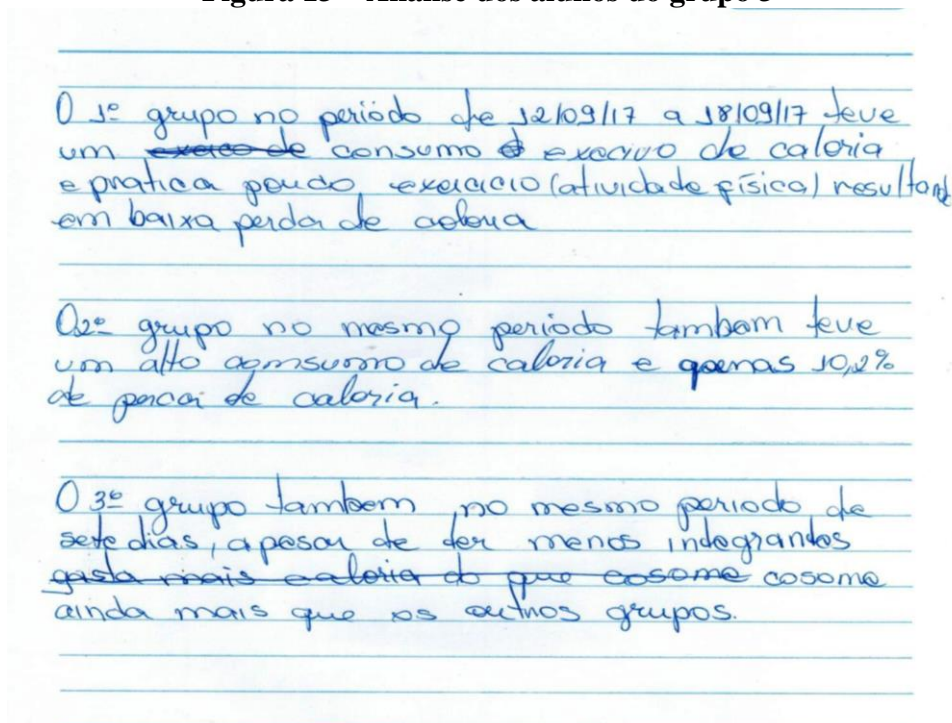 Figura 13 – Análise dos alunos do grupo 3
O 1º grupo no período de 12/09/17 a 18/09/17 teve
um exerco de consumo d execivo de caloria
e pratica pouco exercicio (atividade física) resultand
em baixa perda de caloria
O 2º grupo no mesmo periodo tambem teve
um alto comsumo de caloria e apenas 10,2%
de perca de caloria.
O 3º grupo tambem no mesmo periodo de
sete dias, apesar de ter menos integrantes
gasta mais caloria do que cosome cosome
ainda mais que os outros grupos.